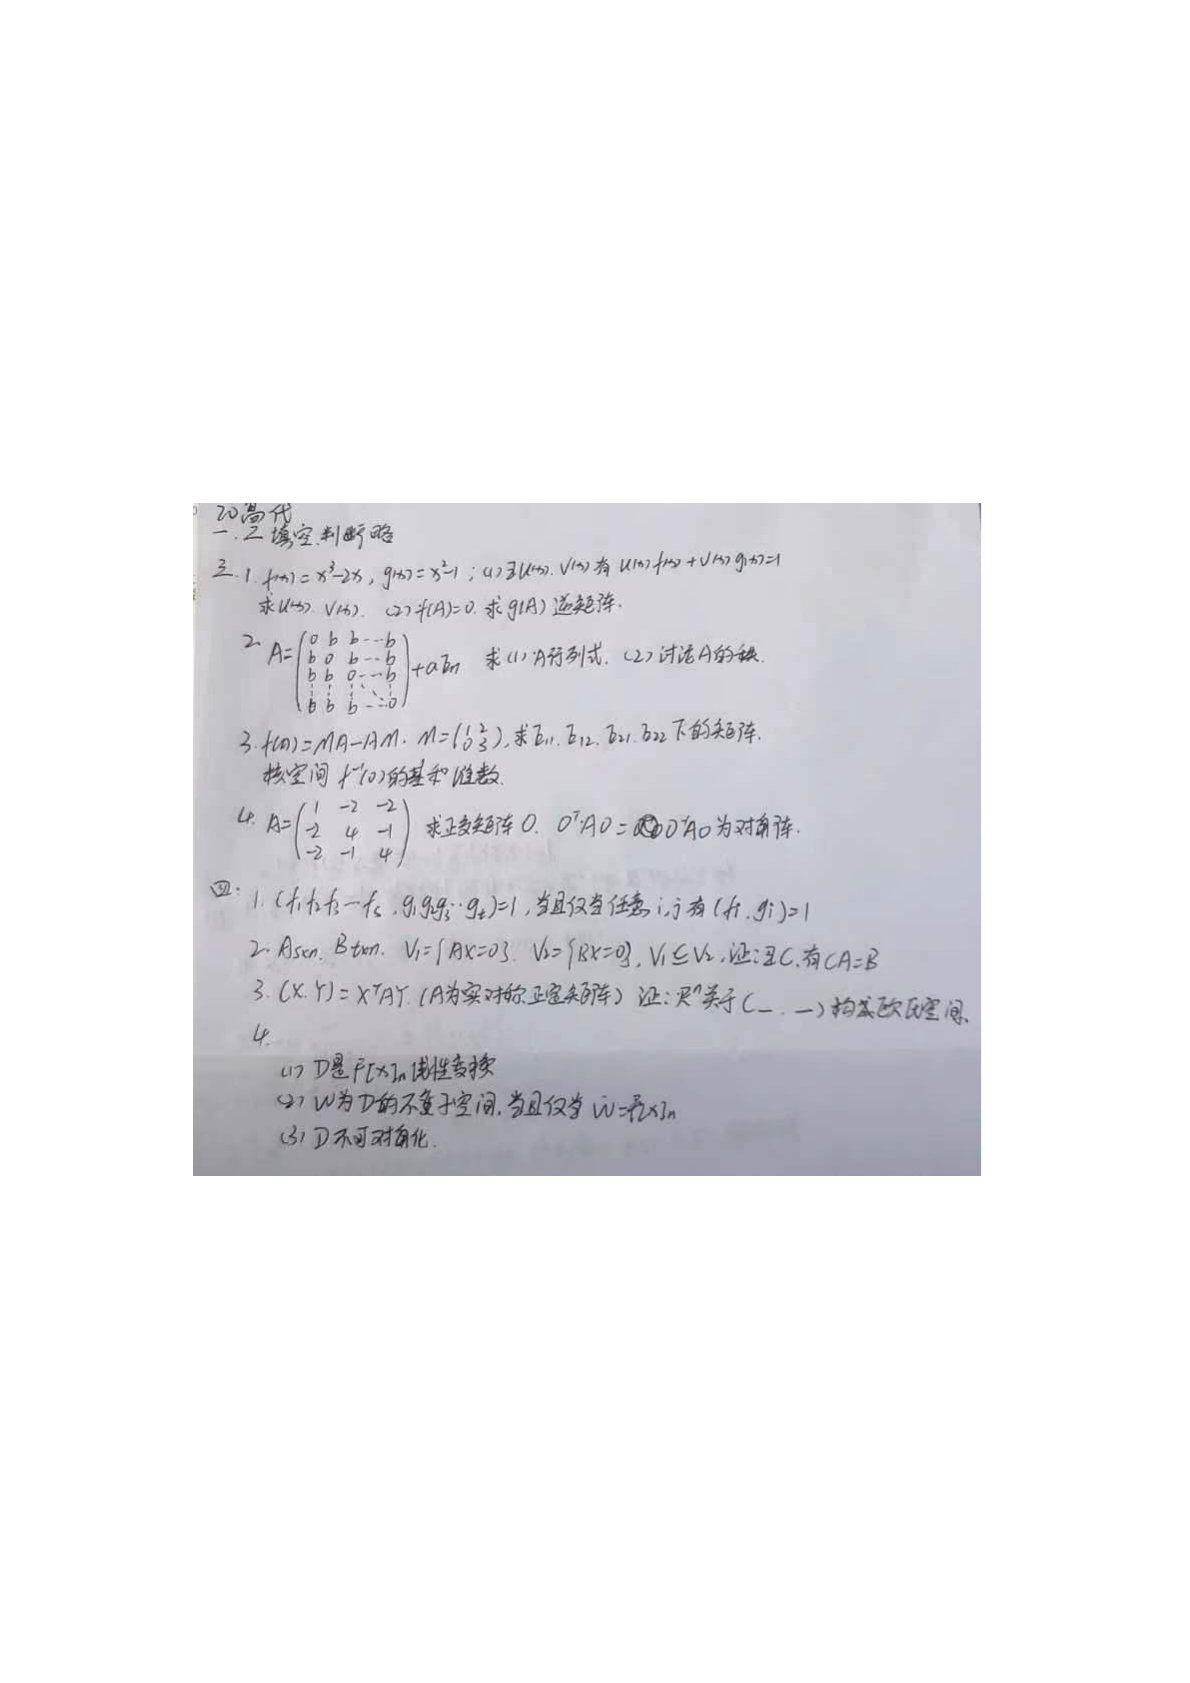 20高代
一.二填空.判断略
三.1. f(x)=x³-2x, g(x)=x²-1; (1)∃u(x).v(x)有 u(x)f(x)+v(x)g(x)=1
求u(x).v(x). (2)f(A)=0.求g(A)逆矩阵.
2. A=(0 b b ---b
b 0 b ---b
b b 0 ---b
b b b ---0)+aEn 求(1)A行列式.(2)讨论A的秩.
3. f(A)=MA-AM. M=(1 2
0 3),求E11.E12.E21.E22下的矩阵.
核空间f⁻¹(0)的基和维数.
4. A=(1 -2 -2
-2 4 -1
-2 -1 4) 求正交矩阵O. OᵀAO=OᵀAO为对角阵.
四:
1. (f1f2f3--fs, g1g2g3··gt)=1,当且仅当任意i,j有(fi,gi)=1
2. Asxn. Btxn. V1={AX=0}. V2={BX=0}, V1⊆V2,证:∃C.有CA=B
3. (X.Y)=XᵀAY.(A为实对称正定矩阵) 证:Rⁿ关于(-.-)构成欧氏空间.
4.
(1) D是F[x]n线性变换
(2) W为D的不变子空间.当且仅当 W=F[x]n
(3) D不可对角化.